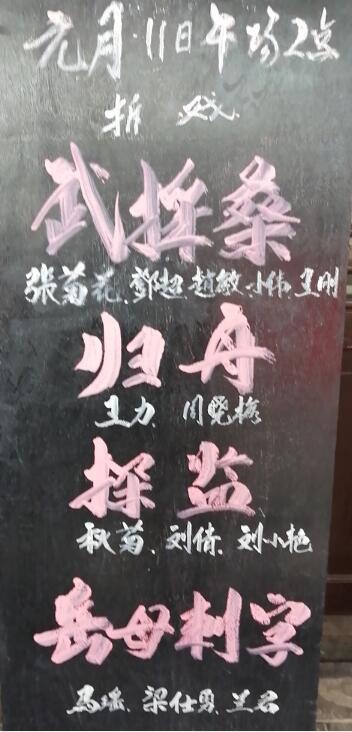 元月·11日午场2点
折戏
武採桑
張菊花、鄧超、趙敏、小伟、王刚
归舟
王力、周晓梅
探监
秋菊、刘倩、刘小艳
岳母刺字
马瑶、梁仕勇、兰名